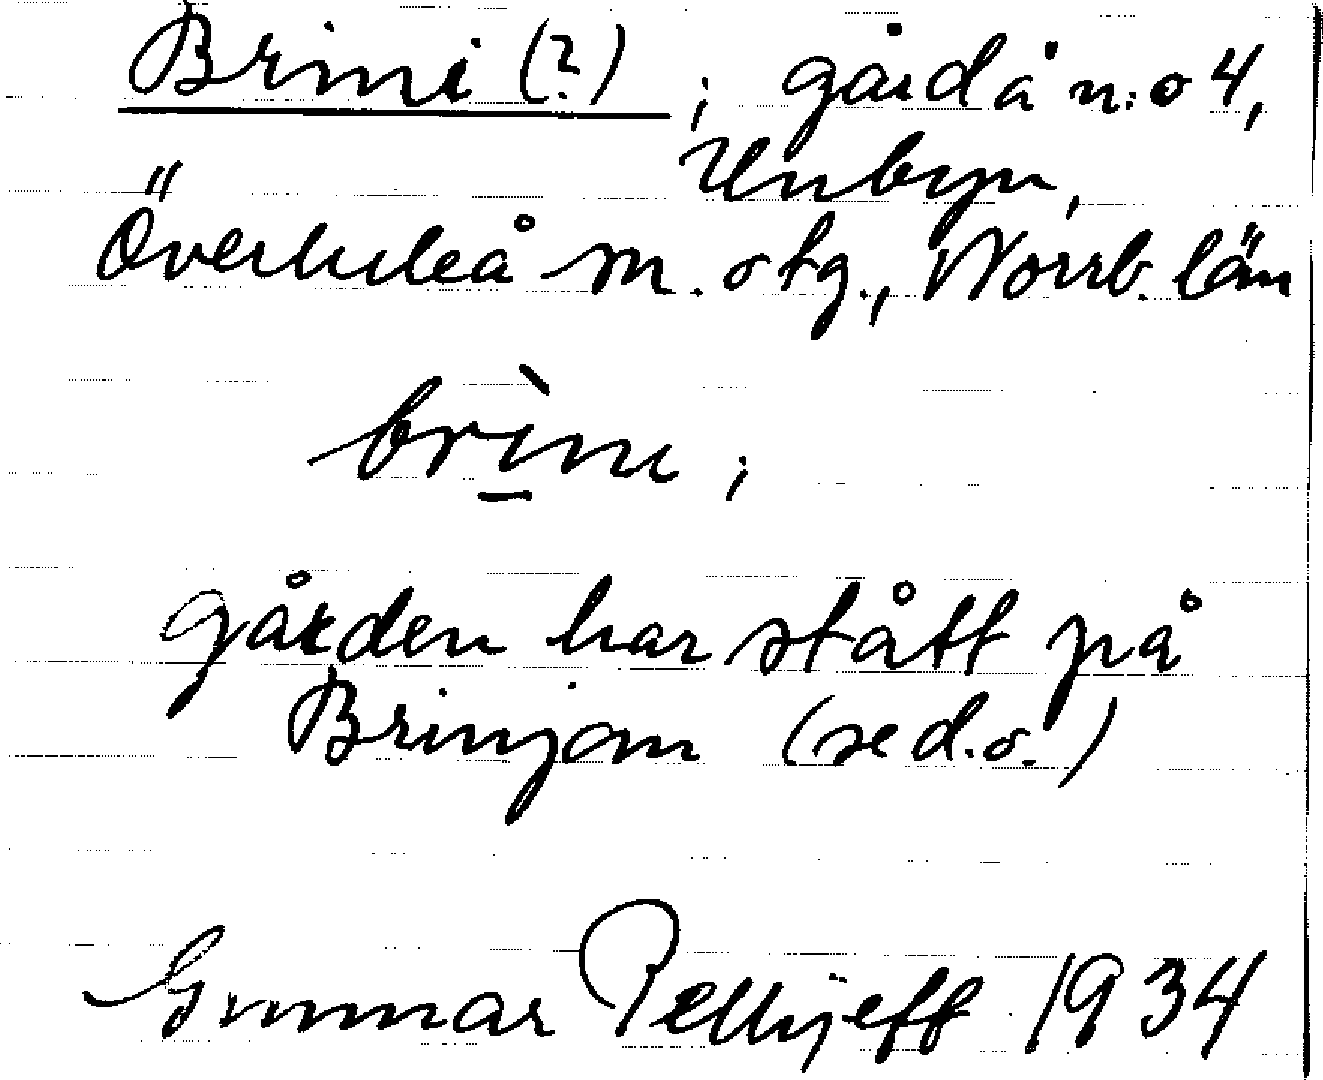 Brini (?) ; gård å n:o 4,
Unbyn,
Överluleå sn. o tg., Norrb. län
brìni ;
gården har stått på
Brinjan (se d.o.)
Gunnar Pellijeff 1934